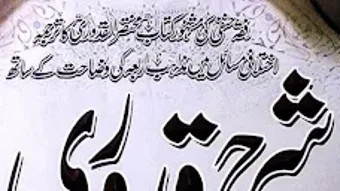 فقہ حنفی کی مشہور کتاب مختصر القدوری کا ترجمہ
اختلافی مسائل میں مذاہب اربعہ کی وضاحت کے ساتھ
شرح قدوری